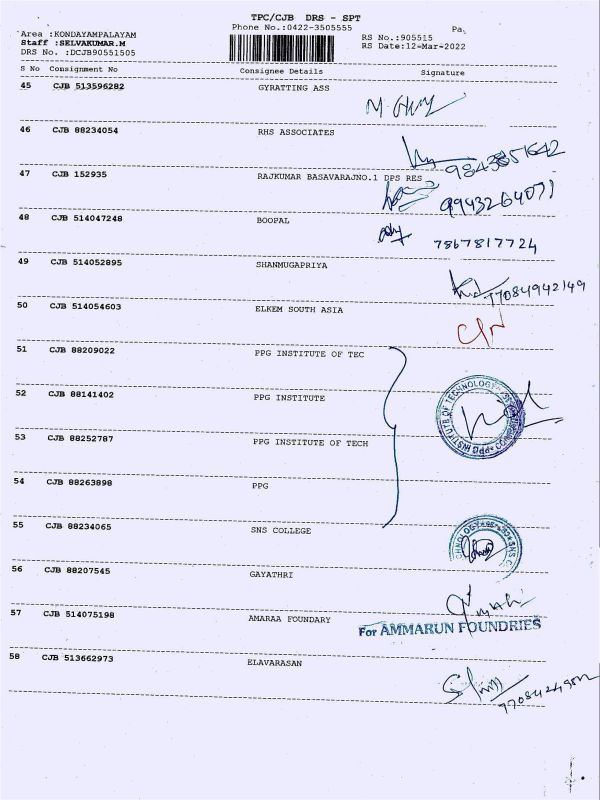 TPC/CJB DRS - SPT
Phone No.:0422-3505555
Pa
Area :KONDAYAMPALAYAM
Staff :SELVAKUMAR.M
DRS No. :DCJB90551505
RS No.:905515
RS Date:12-Mar-2022
S No Consignment No Consignee Details Signature
45 CJB 513596282 GYRATTING ASS
46 CJB 88234054 RHS ASSOCIATES
47 CJB 152935 RAJKUMAR BASAVARAJNO.1 DPS RES
9943264071
48 CJB 514047248 BOOPAL
7867817724
49 CJB 514052895 SHANMUGAPRIYA
77084942149
50 CJB 514054603 ELKEM SOUTH ASIA
51 CJB 88209022 PPG INSTITUTE OF TEC
52 CJB 88141402 PPG INSTITUTE
53 CJB 88252787 PPG INSTITUTE OF TECH
PPG INSTITUTE OF TECHNOLOGY
54 CJB 88263898 PPG
55 CJB 88234065 SNS COLLEGE
56 CJB 88207545 GAYATHRI
57 CJB 514075198 AMARAA FOUNDARY
For AMMARUN FOUNDRIES
58 CJB 513662973 ELAVARASAN